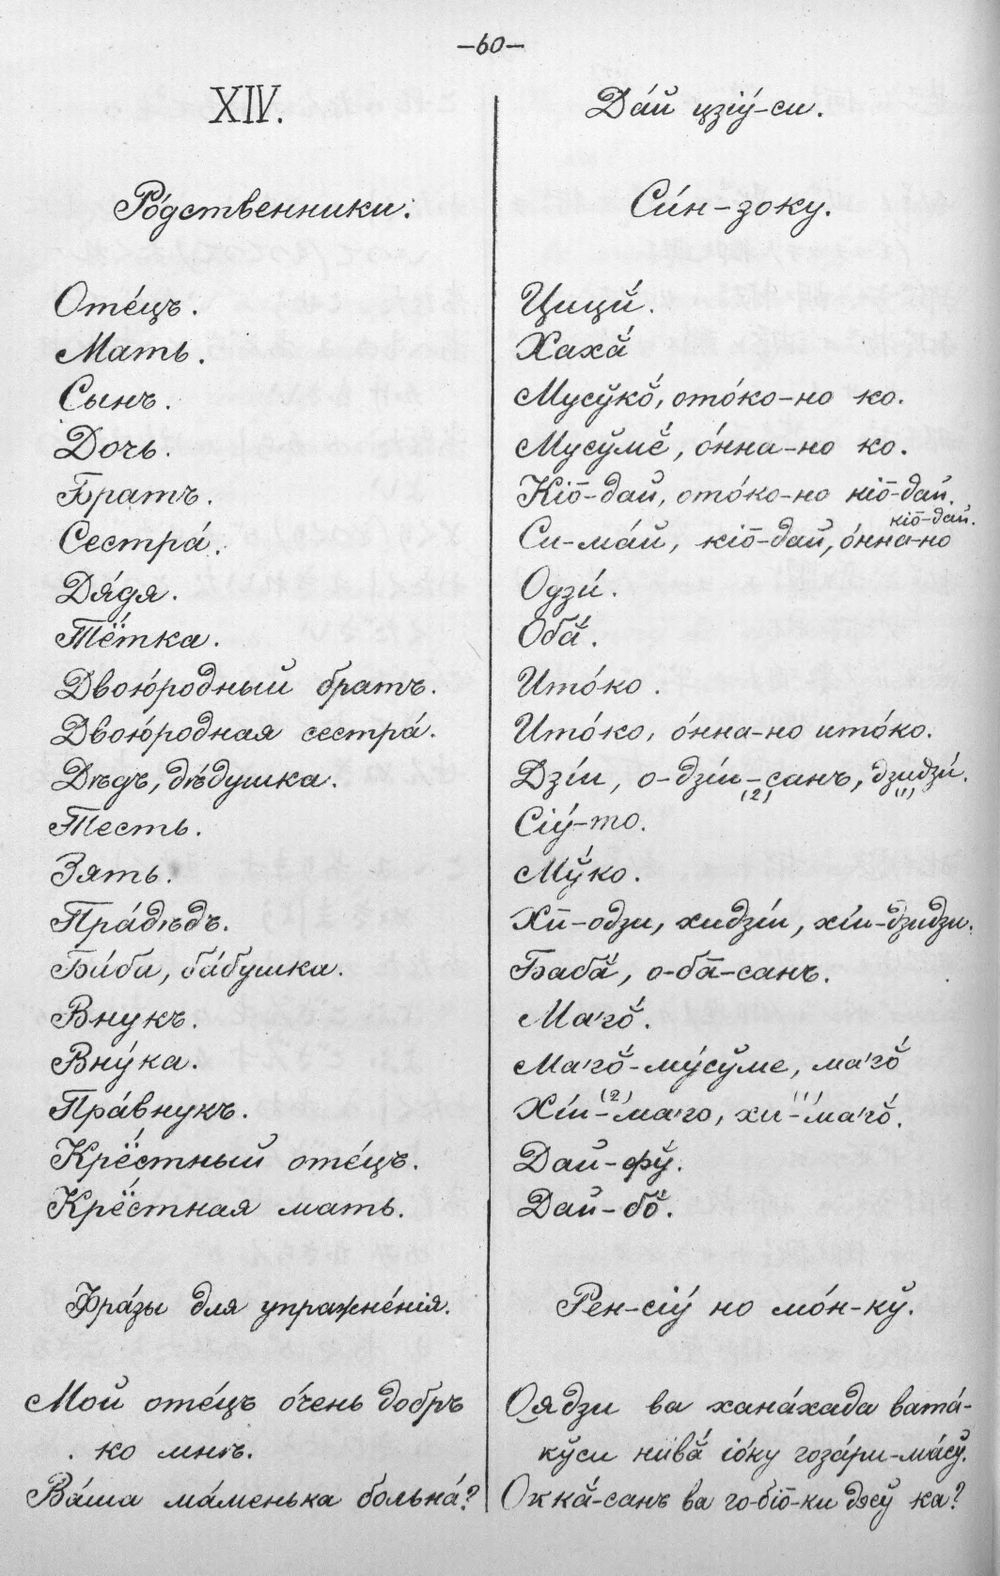 —60—
XIV.
Ро́дственники.
Оте́цъ.
Мать.
Сынъ.
Дочь.
Братъ.
Сестра́.
Дя́дя.
Тётка.
Двою́родный братъ.
Двою́родная сестра́.
Дѣдъ, дѣ́душка.
Тесть.
Зять.
Пра́дѣдъ.
Ба́ба, ба́бушка.
Внукъ.
Вну́ка.
Пра́внукъ.
Крёстный оте́цъ.
Крёстная мать.
Фра́зы для упражне́нія.
Мой оте́цъ о́чень добръ
ко мнѣ.
Ва́ша ма́менька больна́?
Да́й цзіу́-си.
Си́н-зоку.
Цицй́.
Хахӑ́
Мусўко̆́, ото́ко-но ко.
Мусўмӗ́, о́нна-но ко.
Кіо̄-дай, ото́ко-но кіо̄-дай.
Си-ма́й, кіо̄-дай, о́нна-но
кіо̄-дай.
Одзи́.
Обӑ́.
Ито́ко.
Ито́ко, о́нна-но ито́ко.
Дзі́и, о-дзі́и-санъ, дзидзи́.
(2) (1)
Сіу́-то.
Мў́ко.
Хӣ-одзи, хидзі́и, хі́и-дзидзи.
Бабӑ́, о-ба̄-санъ.
Маго̆́.
Маго̆́-му́сўме, маго̆́
Хі́и-маго, хи-маго̆́.
(2) (1)
Дай-фў́.
Дай-бо̆́.
Рен-сіу́ но мо́н-кў.
Оядзи ва хана́хада вата́-
кўси нивӑ́ іо́ку гоза́ри-ма́сў.
Оккӑ́-санъ ва го-біо̄-ки дэсў ка?